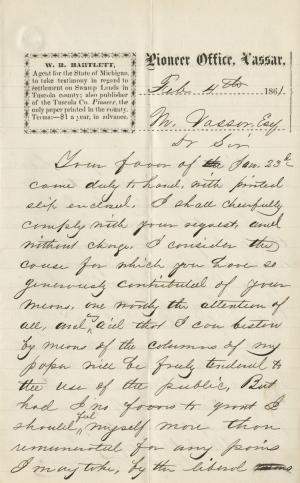 W. R. BARTLETT,
Agent for the State of Michigan,
to take testimony in regard to
settlement on Swamp Lands in
Tuscola county; also publisher
of the Tuscola Co. Pioneer, the
only paper printed in the county.
Terms:—$1 a year, in advance.
Pioneer Office, Vassar,
Feb 4th 1861.
M. Vassar Esq
Dr Sir
Your favor of the Jan. 23d
came duly to hand, with printed
slip enclosed. I shall cheerfully
comply with your request, and
without charge. I consider the
cause for which you have so
generously contributed of your
means, one worthy the attention of
all, and any aid that I can bestow
by means of the columns of my
paper will be freely tendered to
the use of the public. But
had I no favors to grant I
should feel myself more than
remunerated for any pains
I may take, by the liberal means